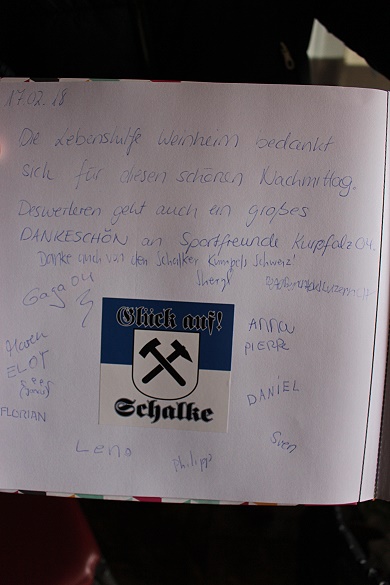 17.02.18
Die Lebenshilfe Weinheim bedankt
sich für diesen schönen Nachmittag.
Desweiteren geht auch ein großes
DANKESCHÖN an Sportfreunde Kurpfalz 04.
Danke auch von den Schalker Kumpels Schweiz!
Gaga 04
Glück auf!
Schalke
ANNA
PIERRE
ELOT
DANIEL
FLORIAN
Sven
Leno
Philipp